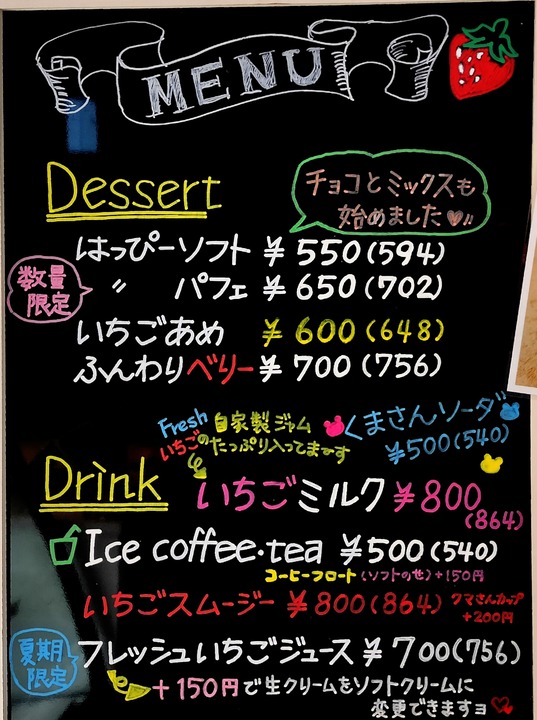 MENU
Dessert
チョコとミックスも
始めました
はっぴーソフト ¥550(594)
数量
限定
〃 パフェ ¥650(702)
いちごあめ ¥600(648)
ふんわりベリー ¥700(756)
Fresh 自家製ジャム
いちごのたっぷり入ってまーす
くまさんソーダ
¥500(540)
Drink
いちごミルク ¥800
(864)
Ice coffee・tea ¥500(540)
コーヒーフロート(ソフトのせ)+150円
いちごスムージー ¥800(864)
クマさんカップ
+200円
夏期
限定
フレッシュいちごジュース ¥700(756)
+150円で生クリームをソフトクリームに
変更できますョ